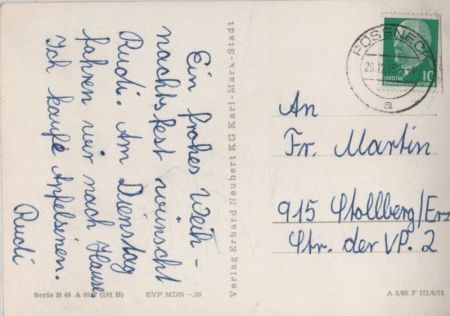 Ein frohes Weih-
nachtsfest wünscht
Rudi. Am Dienstag
fahren wir nach Hause.
Ich kaufe Apfelsinen.
Rudi
Verlag Erhard Neubert KG Karl-Marx-Stadt
PÖSSNECK
a
DEUTSCHE
10
An
Fr. Martin
915 Stollberg/Erz
Str. der VP. 2
Serie B 46 A (191 B)
EVP MDN -.20
A 2/65. F III/6/73